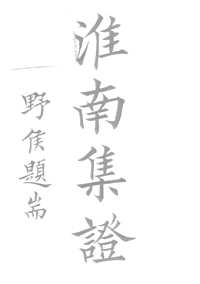 淮南集證
野侯題耑